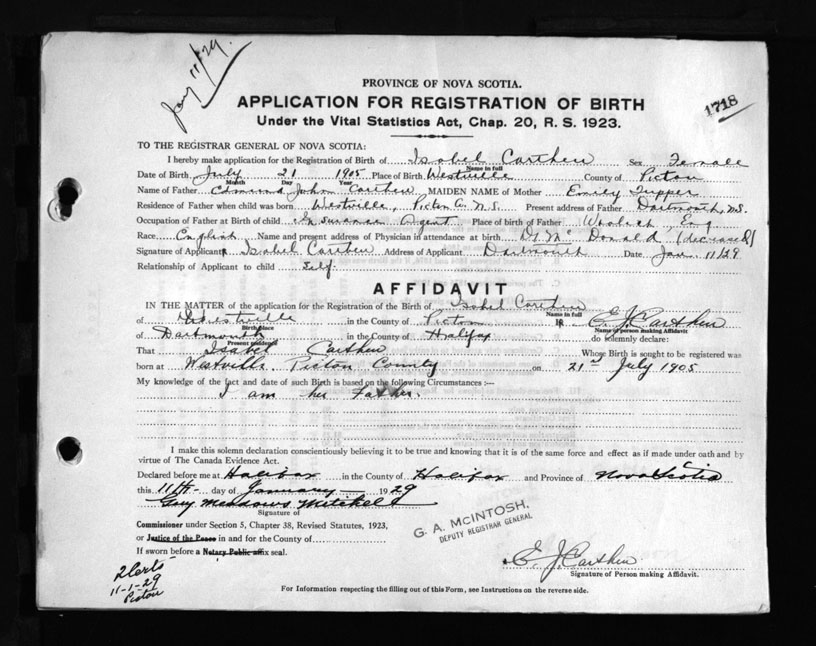 Jany 11/29.
PROVINCE OF NOVA SCOTIA.
APPLICATION FOR REGISTRATION OF BIRTH
1718
Under the Vital Statistics Act, Chap. 20, R. S. 1923.
TO THE REGISTRAR GENERAL OF NOVA SCOTIA:
I hereby make application for the Registration of Birth of Isobel Carthew Sex Female
Name in full
Date of Birth. July 21 1905 Place of Birth Westville County of Pictou
Month Day Year
Name of Father Edmund John Carthew MAIDEN NAME of Mother Emily Tupper
Residence of Father when child was born Westville, Pictou Co. N.S. Present address of Father Dartmouth, N.S.
Occupation of Father at Birth of child Insurance Agent Place of birth of Father Woolwich Eng
Race. English Name and present address of Physician in attendance at birth Dr Mc Donald (deceased)
Signature of Applicant Isobel Carthew Address of Applicant Dartmouth Date Jan. 11/29
Relationship of Applicant to child Self.
AFFIDAVIT
IN THE MATTER of the application for the Registration of the Birth of Isobel Carthew
Name in full
of Westville in the County of Pictou I, E. J. Carthew
Birth place Name of person making Affidavit
of Dartmouth in the County of Halifax do solemnly declare:
Present residence
That Isabel Carthew Whose Birth is sought to be registered was
born at Westville, Pictou County on 21st July 1905
My knowledge of the fact and date of such Birth is based on the following Circumstances :—
I am her Father.
I make this solemn declaration conscientiously believing it to be true and knowing that it is of the same force and effect as if made under oath and by
virtue of The Canada Evidence Act.
Declared before me at Halifax in the County of Halifax and Province of Nova Scotia
this 11th day of January 1929
Guy Meadows Mitchell
Signature of
G. A. McINTOSH,
DEPUTY REGISTRAR GENERAL
Commissioner under Section 5, Chapter 38, Revised Statutes, 1923,
or Justice of the Peace in and for the County of
If sworn before a Notary Public affix seal.
E. J. Carthew
Signature of Person making Affidavit.
2 Certs
11-1-29
Pictou
For Information respecting the filling out of this Form, see Instructions on the reverse side.